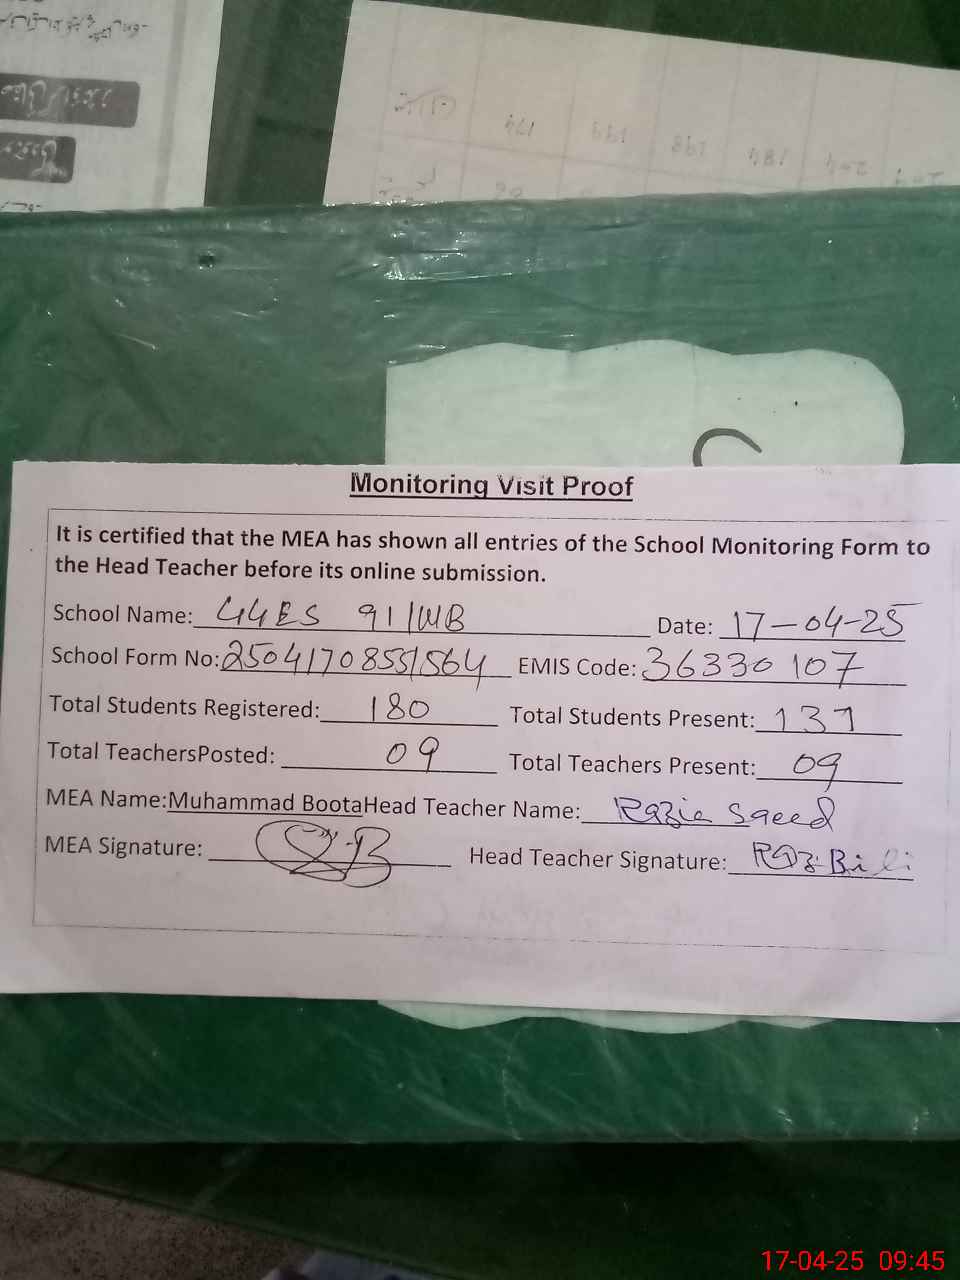 174 199 198 184 204
Monitoring Visit Proof
It is certified that the MEA has shown all entries of the School Monitoring Form to
the Head Teacher before its online submission.
School Name: GGES 91/WB Date: 17-04-25
School Form No: 25041708551564 EMIS Code: 36330107
Total Students Registered: 180 Total Students Present: 131
Total TeachersPosted: 09 Total Teachers Present: 09
MEA Name:Muhammad BootaHead Teacher Name: Razia Saeed
MEA Signature: Head Teacher Signature:
17-04-25 09:45